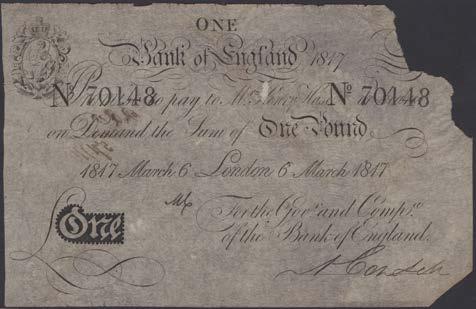 ONE
Bank of England 1817
No 70148 No 70148
to pay to Mr.
on Demand the Sum of One Pound
1817 March 6 London 6 March 1817
For the Govr. and Compa.
of the Bank of England.
One